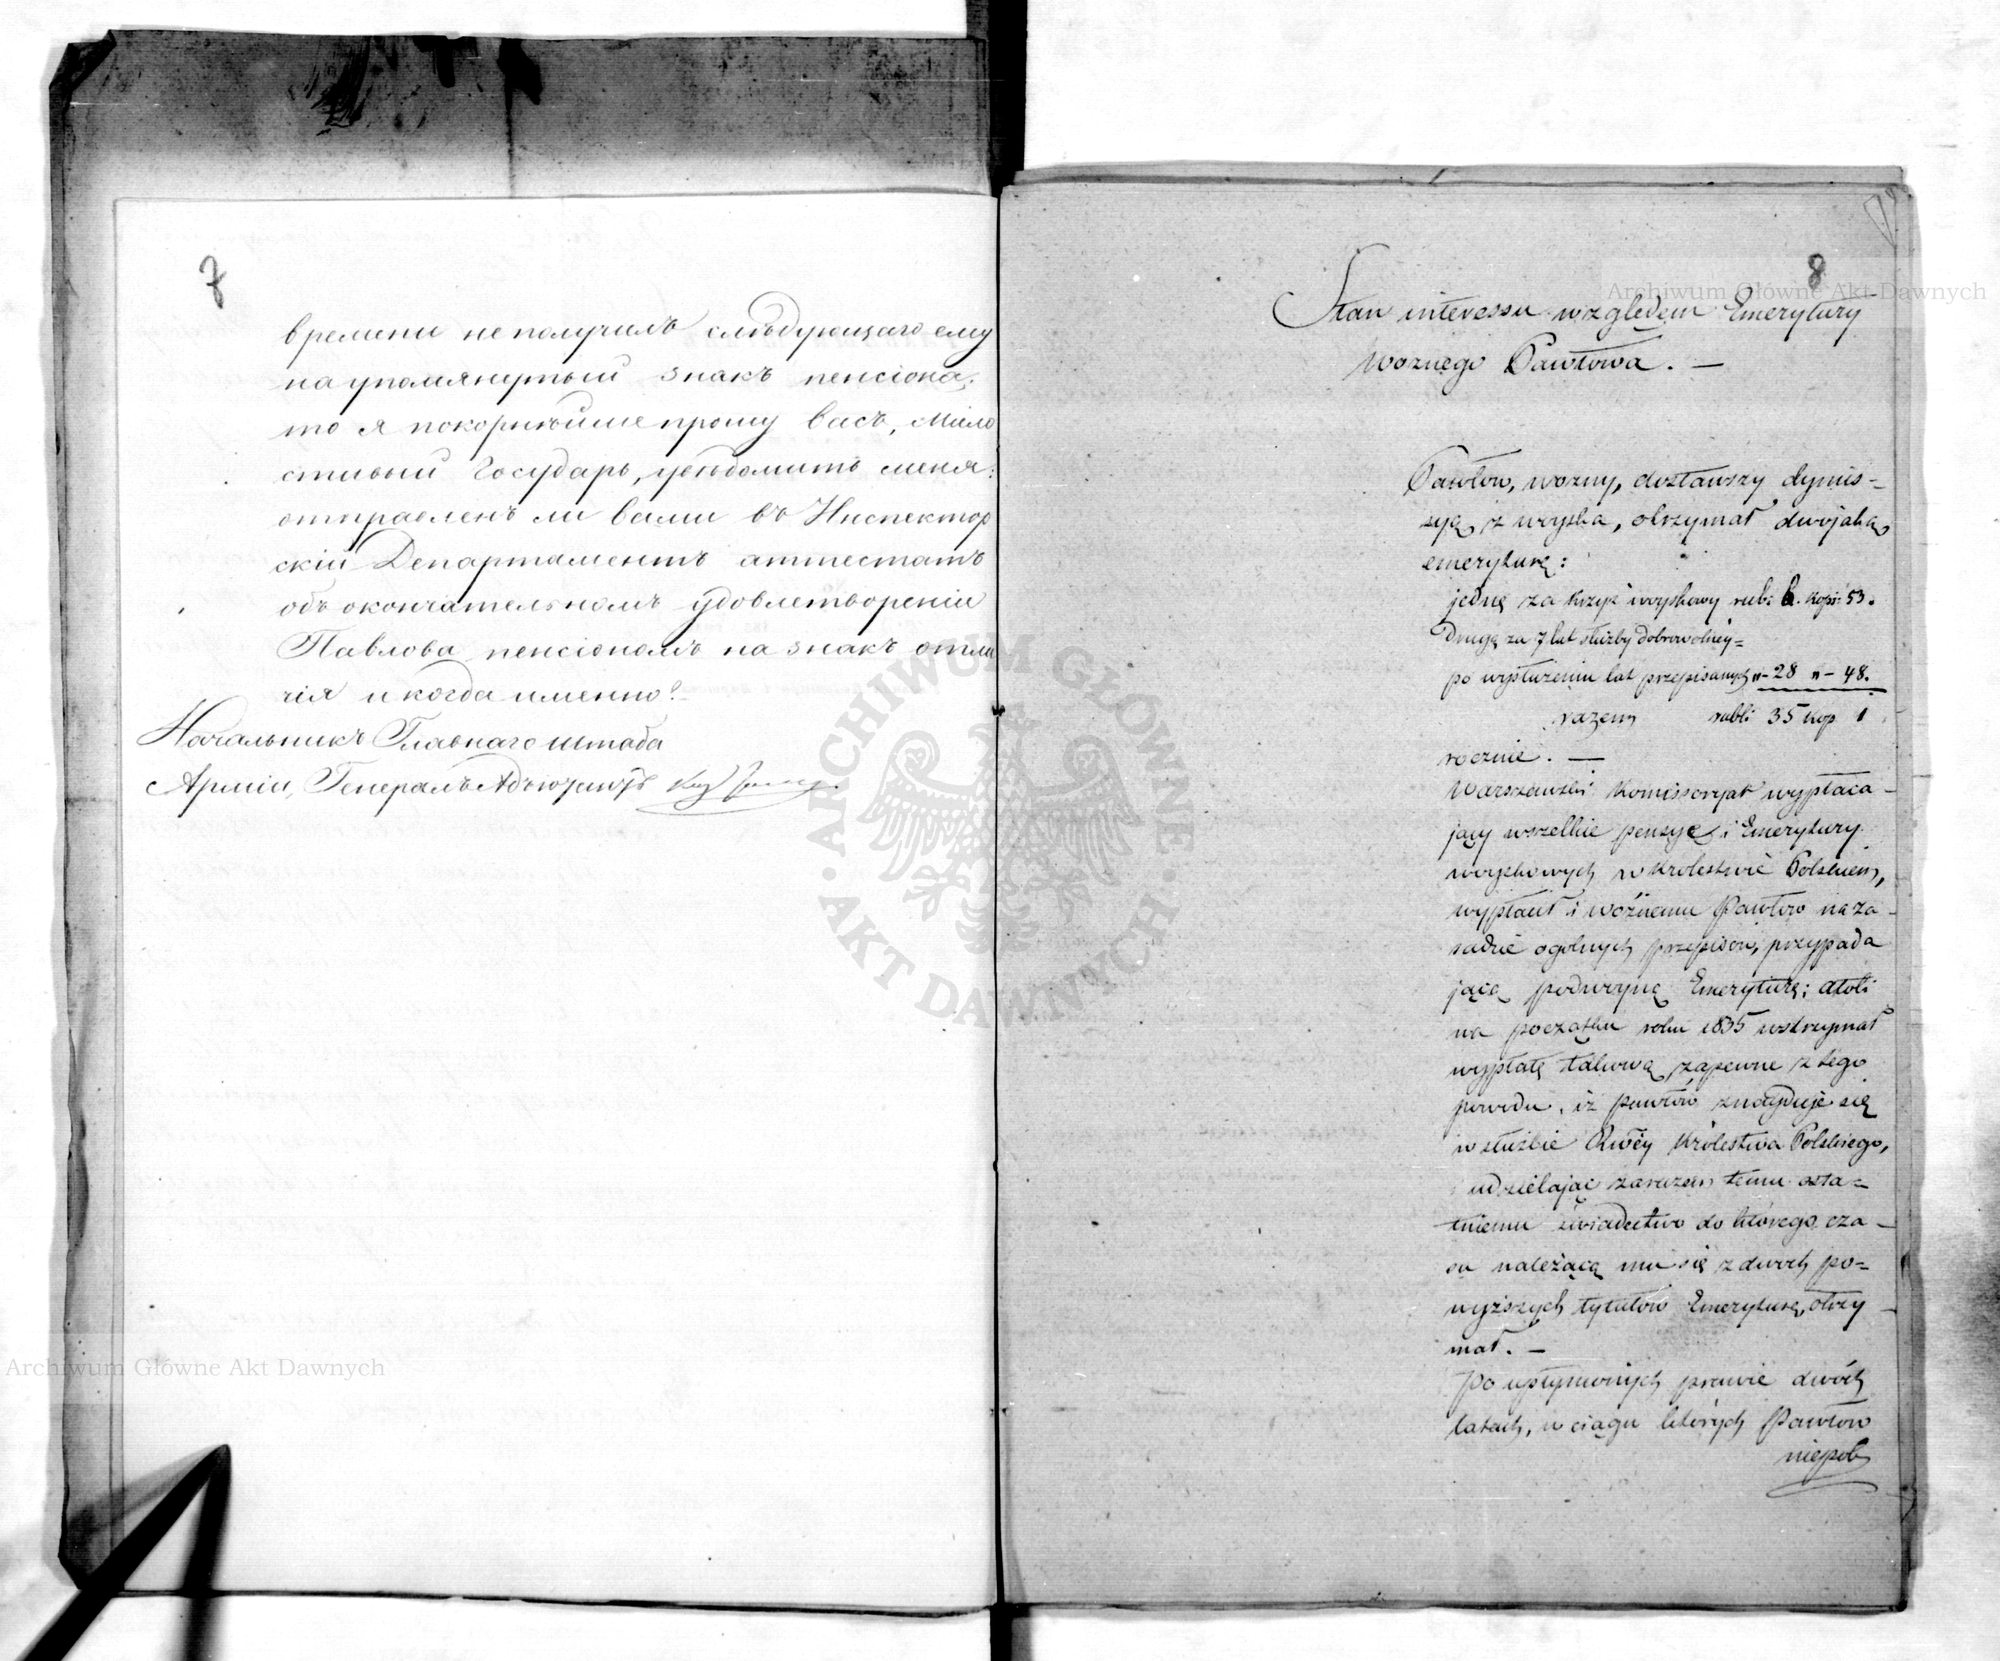 7
времени не получилъ слѣдующаго ему
на упомянутый знакъ пенсіона,
то я покорнѣйше прошу васъ, Мило
стивый Государь, увѣдомить меня:
отправленъ ли вами въ Инспектор
скій Департаментъ аттестатъ
объ окончательномъ удовлетвореніи
Павлова пенсіономъ на знакъ отли
чія и когда именно?
Начальникъ Главнаго штаба
Арміи, Генералъ Адъютантъ
8
Stan interessu względem Emerytury
Woznego Pawłowa. —
Pawłow, wozny, dostawszy dymis-
syą z woyska, otrzymał dwojaką
emeryturę:
jednę za krzyż woyskowy rub: 6. kop: 53.
Drugą za 7 lat służby dobrowolney
po wysłużeniu lat przepisanych „- 28 „- 48.
razem rubli 35 kop 1
rocznie. —
Warszawski Komissoryat wypłaca-
jący wszelkie pensye i Emerytury
woyskowych w Królestwie Polskiem,
wypłacał i woźnemu Pawłow na za-
sadzie ogolnych przepisow, przypada
jącą podwoyną Emeryturę; atoli
na początku roku 1835 wstrzymał
wypłatę takową zapewne z tego
powodu, iż Pawłów znayduje się
w służbie Królestwa Polskiego,
udzielając zarazem temu osta-
tniemu świadectwo do którego cza-
su należącą mu się z dwoch po-
wyższych tytułow Emeryturę otrzy-
mał. —
Po upłynionych prawie dwóch
latach, w ciągu których Pawłow
niepob
Archiwum Główne Akt Dawnych
Archiwum Główne Akt Dawnych
ARCHIWUM GŁÓWNE · AKT DAWNYCH ·